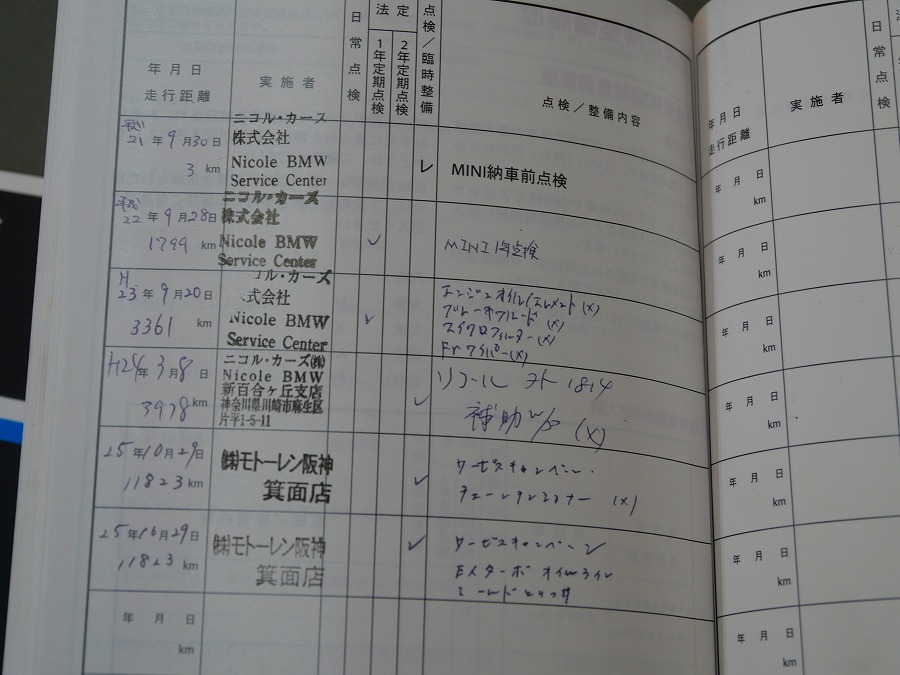 年月日
走行距離
実施者
日常点検
法定
1年定期点検
2年定期点検
点検／臨時整備
点検／整備内容
平成
21年9月30日
3 km
ニコル・カーズ
株式会社
Nicole BMW
Service Center
レ
MINI納車前点検
平成
22年9月28日
1799 km
ニコル・カーズ
株式会社
Nicole BMW
Service Center
レ
MINI 1年点検
H
23年9月20日
3361 km
コル・カーズ
式会社
Nicole BMW
Service Center
レ
エンジンオイル/エレメント (X)
ブレーキフルード (X)
マイクロフィルター (X)
Frワイパー (X)
H24年3月8日
3978 km
ニコル・カーズ(株)
Nicole BMW
新百合ヶ丘支店
神奈川県川崎市麻生区
片平1-5-11
レ
リコール
補助W/P (X)
25年10月29日
11823 km
㈱モトーレン阪神
箕面店
レ
サービスキャンペーン
チェーンテンショナー (X)
25年10月29日
11823 km
㈱モトーレン阪神
箕面店
レ
サービスキャンペーン
ターボオイルライン
年 月 日
km
年月日
走行距離
実施者
日常点検
年 月 日
km
年 月 日
km
年 月 日
km
年 月 日
km
年 月 日
km
年 月 日
km
年 月 日
km